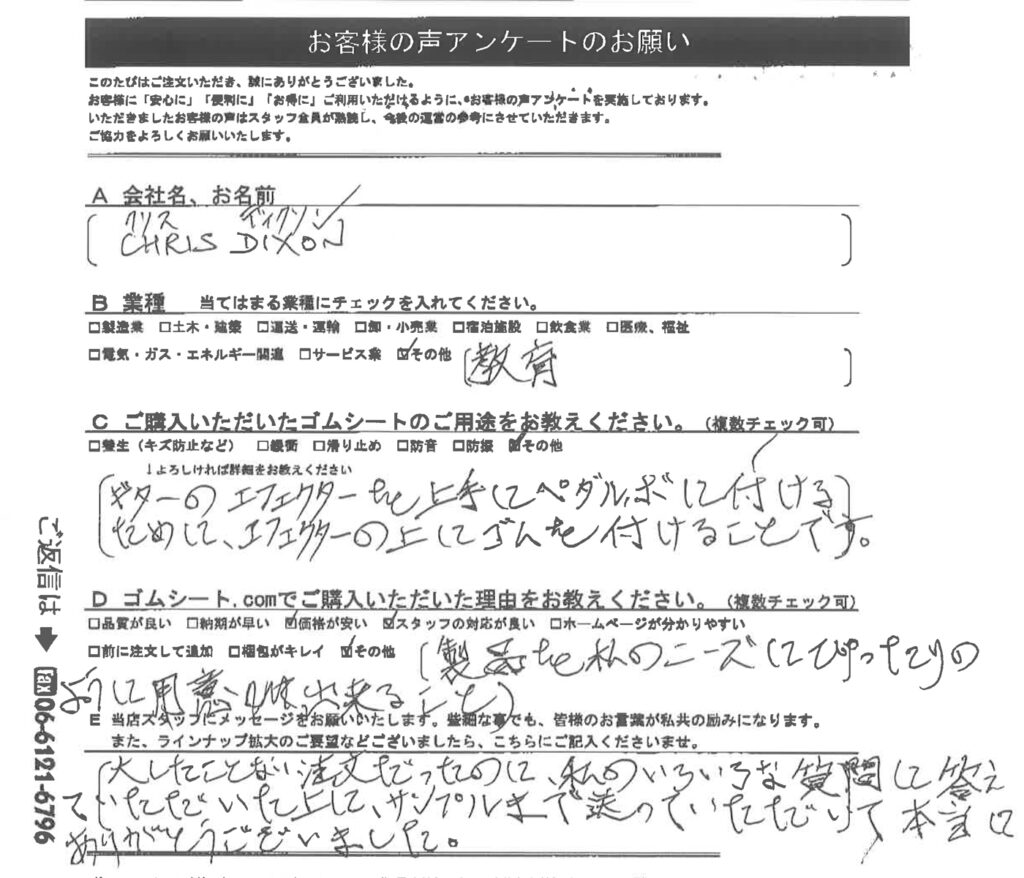 お客様の声アンケートのお願い
このたびはご注文いただき、誠にありがとうございました。
お客様に「安心に」「便利に」「お得に」ご利用いただけるように、お客様の声アンケートを実施しております。
いただきましたお客様の声はスタッフ全員が熟読し、今後の運営の参考にさせていただきます。
ご協力をよろしくお願いいたします。
A 会社名、お名前
クリス ディクソン
CHRIS DIXON
B 業種 当てはまる業種にチェックを入れてください。
□製造業 □土木・建築 □運送・運輸 □卸・小売業 □宿泊施設 □飲食業 □医療、福祉
□電気・ガス・エネルギー関連 □サービス業 ☑その他 (教育)
C ご購入いただいたゴムシートのご用途をお教えください。(複数チェック可)
□養生(キズ防止など) □緩衝 □滑り止め □防音 □防振 ☑その他
↓よろしければ詳細をお教えください
(ギターのエフェクターを上手にペダルボに付ける
ために、エフェクターの上にゴムを付けることです。
D ゴムシート.comでご購入いただいた理由をお教えください。(複数チェック可)
□品質が良い □納期が早い ☑価格が安い ☑スタッフの対応が良い □ホームページが分かりやすい
□前に注文して追加 □梱包がキレイ ☑その他 (製品を私のニーズにぴったりの
ように用意 出来ること)
E 当店スタッフにメッセージをお願いいたします。些細な事でも、皆様のお言葉が私共の励みになります。
また、ラインナップ拡大のご要望などございましたら、こちらにご記入くださいませ。
(大したことない注文だったのに、私のいろいろな質問に答え
ていただいた上に、サンプルまで送っていただいて本当に
ありがとうございました。
ご返信は➡fax06-6121-6796